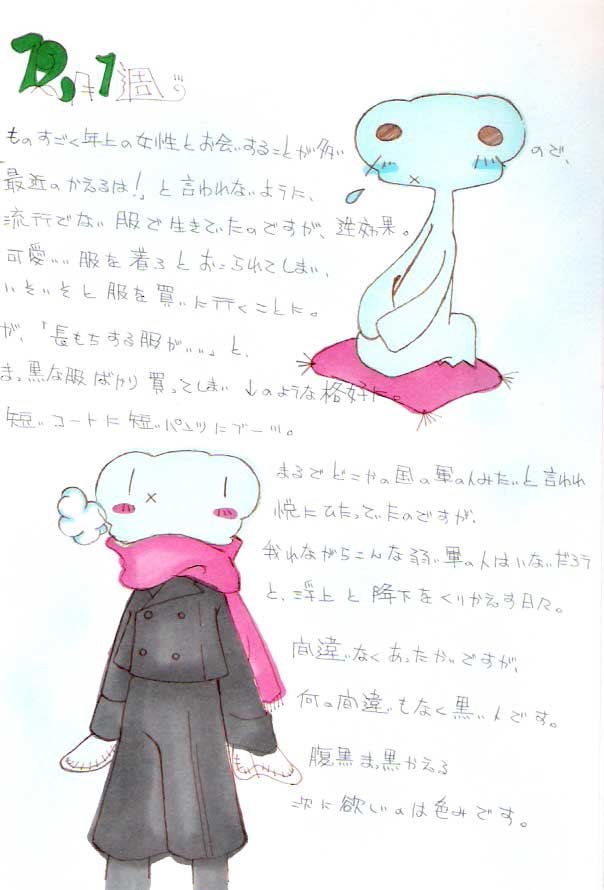 12月1週
ものすごく年上の女性とお会いすることが多いので、
最近のかえるは!と言われないように、
流行でない服で生きていたのですが、逆効果。
可愛いい服を着ろとおこられてしまい、
いそいそと服を買いに行くことに。
が、「長もちする服がいい」と、
ま、黒な服ばかり買ってしまい↓のような格好に。
短いコートに短いパンツにブーツ。
まるでどこかの国の軍の人みたいと言われ
悦にひたっていたのですが、
我れながらこんな弱い軍の人はいないだろう
と、浮上と降下をくりかえす日々。
間違いなくあったかいですが、
何の間違いもなく黒い人です。
腹黒ま、黒かえる
次に欲しいのは色みです。